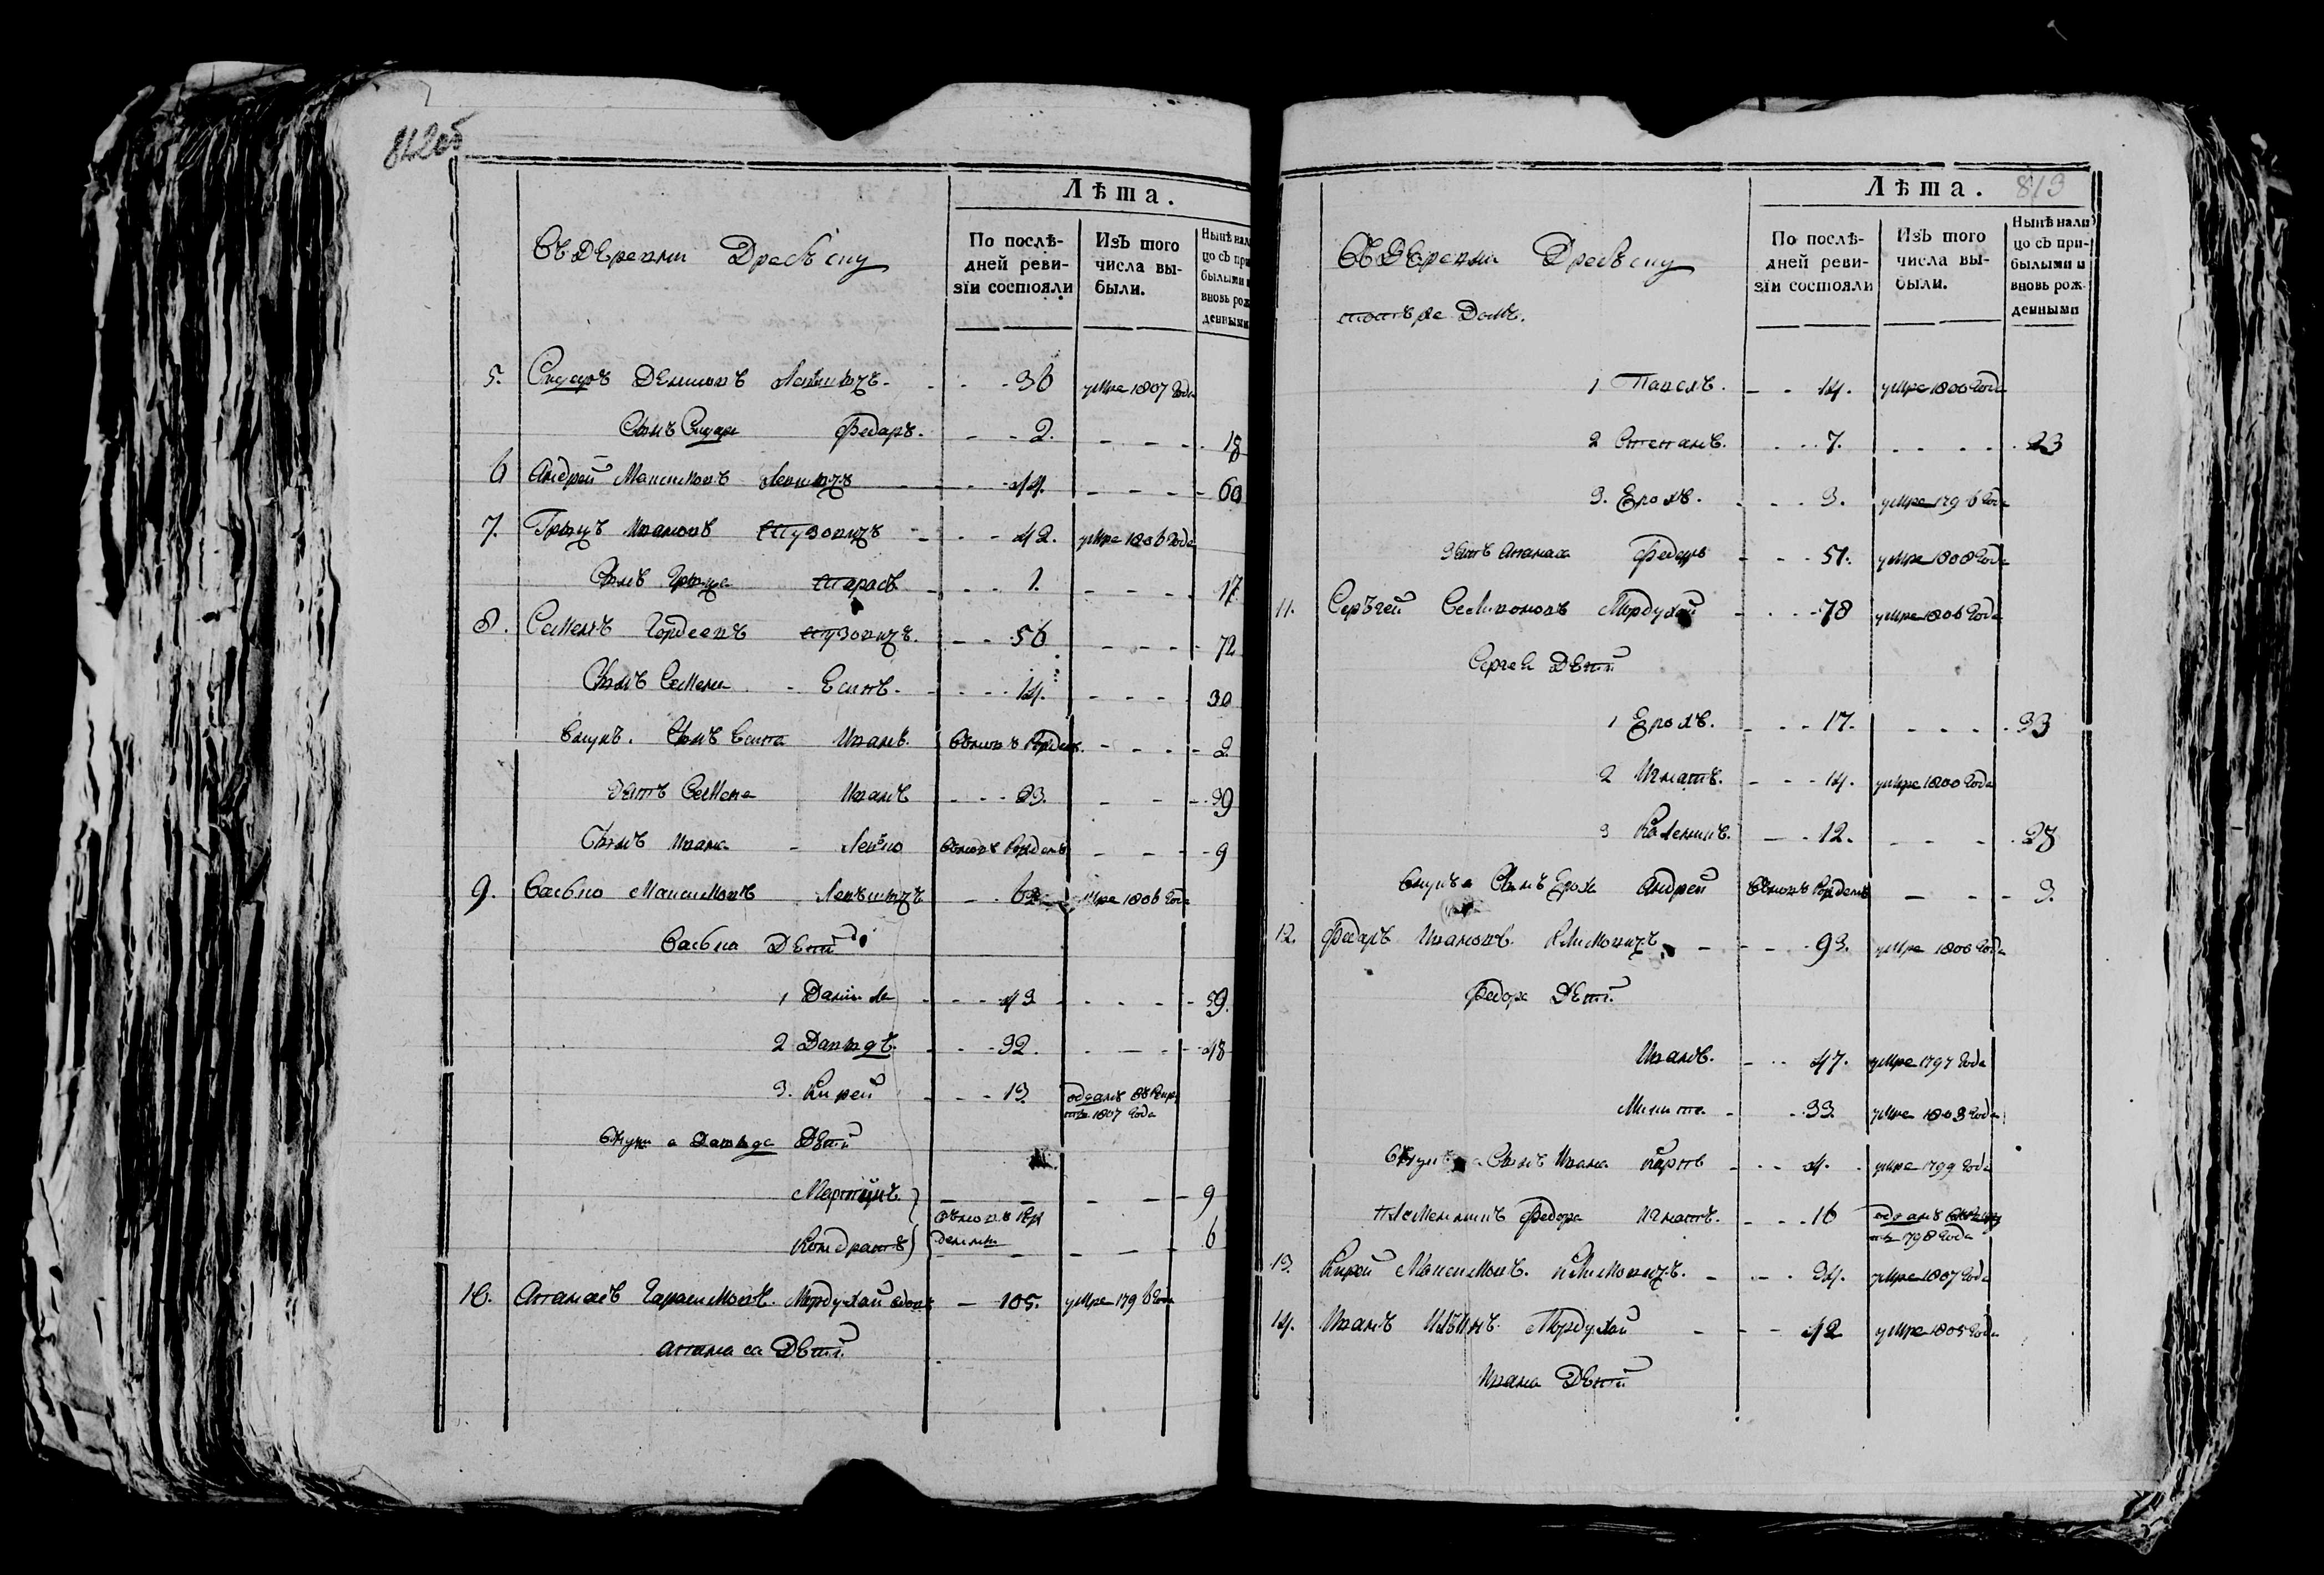 812об
Лѣта.
Въ деревни Древѣску
По послѣ-
дней реви-
зїи состояли
Изъ того
числа вы-
были.
Нынѣ нали
цо съ при
былыми и
вновь рож
денными
5. Сидоръ Деминовъ - - 36 умре 1807 Года
Сынъ Сидора Федаръ. - - 2. - - - 18
6 Андрей Максимовъ - - 44. - - - 60
7. Грыцъ Ивановъ - - 42. умре 1806 Года
Сынъ Грыца Тарасъ - - 1. - - - 17
8. Семенъ Гордеевъ - - 56 - - - 72
Сынъ Семена - Есипъ - - 14. - - - 30
Внукъ. Сынъ Есипа Иванъ. Вновь Рожденъ. - - - 2
Зять Семена Иванъ - - 23. - - 39
Сынъ Ивана - Вновь Рожденъ - - - 9
9. Васько Максимовъ - 62 умре 1806 Года
Васька Дети
1 Данила - - 43 - - - 59.
2 Давыдъ. - - 32. - - - 48
3. Кирей - - 13. отданъ въ Рекру
ты 1807 Года
Внуки а Давыда Дети
Мартинъ. - - - - 9
Вновь Рож
дении
Кондратъ - - - - 6
10. Апанасъ Гарасимовъ. Мордухай - 105. умре 1796 Года
Апанаса Дети
Лѣта. 813
Въ Деревни Древѣску
тотъ же Домъ.
По послѣ-
дней реви-
зїи состояли
Изъ того
числа вы-
были.
Нынѣ нали
цо съ при-
былыми и
вновь рож-
денными
1 Павелъ. - - 14. умре 1800 Года
2 Степанъ. - - 7. - - - 23
3. Ерохъ. - - 3. умре 1796 Года
Зять Апанаса Федоръ - - 51. умре 1808 Года
11. Серьгей Мордухай - - 78 умре 1806 Года
Сергея Дети
1 Ерохъ. - - 17. - - - 33
2 Игнатъ. - - 14. умре 1800 Года
3 - - 12. - - - 28
Внукъ а Сынъ Ероха Андрей Вновь Рожденъ - - 3.
12. Федаръ Ивановъ. Климовичъ - - 93. умре 1806 Года
Федора Дети
Иванъ. - - 47. умре 1797 Года
Микита - - 33 умре 1803 Года
Внукъ а Сынъ Ивана Карпъ - - 4. умре 1799 Года
Племенникъ Федора Игнатъ. - - 16 отданъ
798 Года
13. Кирей Максимовъ. Климовичъ. - - 34. умре 1807 Года
14. Иванъ Ильинъ. Мордухай - - 42 умре 1805 Года
Ивана Дети